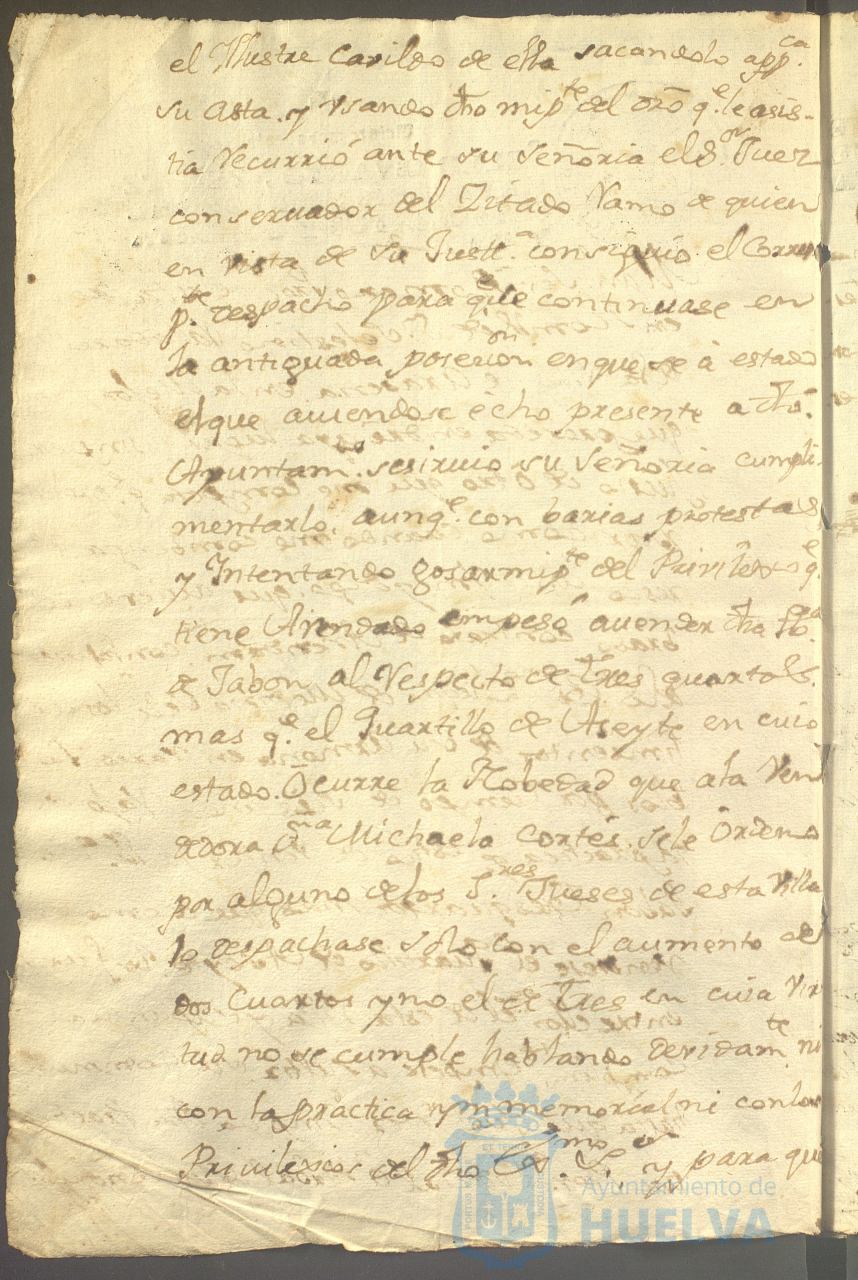 el Illustre Cavildo de ella sacandolo a pp.ca
su Asta. y vsando dho mi p.te del dro q.e le asis-
tia Recurrió ante su señoria el S.or Juez
conservador del Zitado Ramo de quien
en vista de su Justt.a consiguió el Corres
p.te despacho para q.e le continuase en
la antiguada posecion en que se á estado
el que auiendose écho presente a dho
Ayuntam.to se siruio su señoria cumpli-
mentarlo, aunq.e con barias protestas
y Intentando gosar mi p.te del Privilexio q.e
tiene Arrendado empesó a uender dha
de Jabon al Respecto de tres quartos
mas q.e el Quartillo de Aseyte en cuio
estado. Ocurre la Nobedad que a la Ven
dedora Michaela Cortés. se le Ordeno
por alguno de los S.res Jueses de esta Villa
lo despachase solo con el aumento de
dos Cuartos y no el de Tres en cuia Vir
tud no se cumple hablando devidam.te ni
con la practica ynmemorial ni con los
Privilexios del dho Ex.mo S.or y para que
Ayuntamiento de
HUELVA